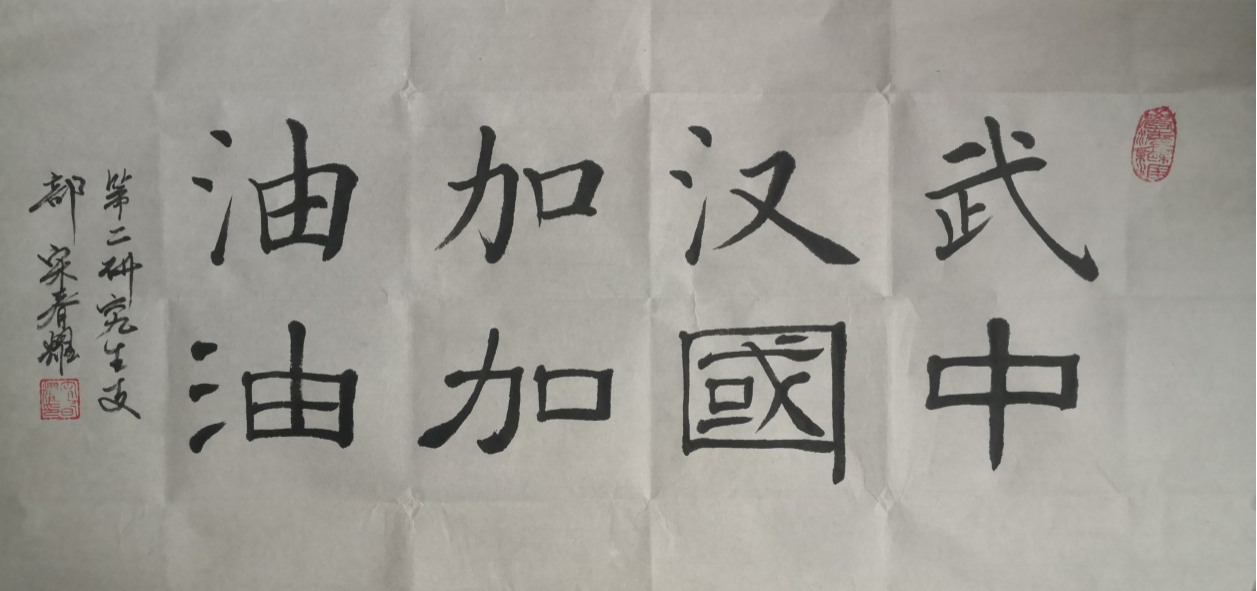 武汉加油
中國加油
第二研究生支
部 宋春耀